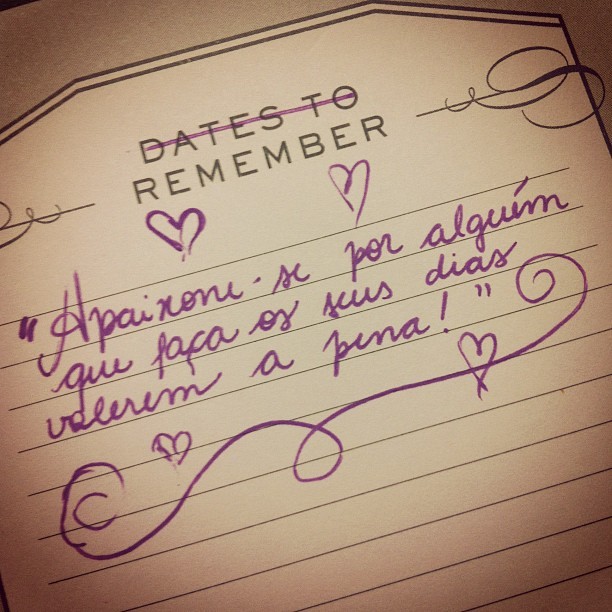 DATES TO
REMEMBER
"Apaixone-se por alguém
que faça os seus dias
valerem a pena!"